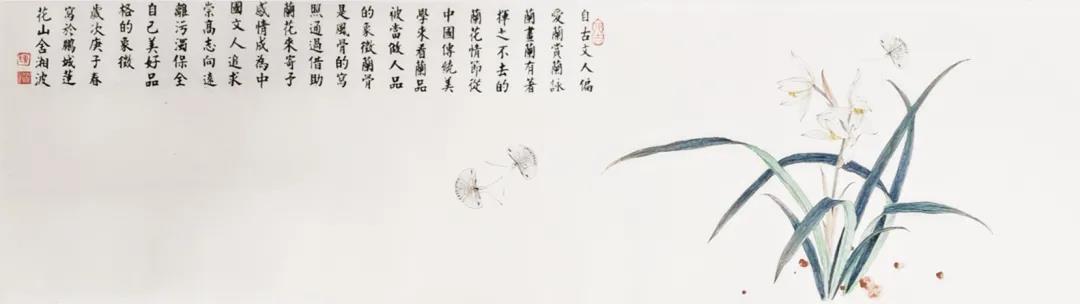 自古文人偏
愛蘭賞蘭詠
蘭畫蘭有著
揮之不去的
蘭花情節從
中國傳統美
學來看蘭品
被當做人品
的象徵蘭骨
是風骨的寫
照通過借助
蘭花來寄予
感情成為中
國文人追求
崇高志向遠
離污濁保全
自己美好品
格的象徵
歲次庚子春
寫於鵬城蓮
花山金湘波